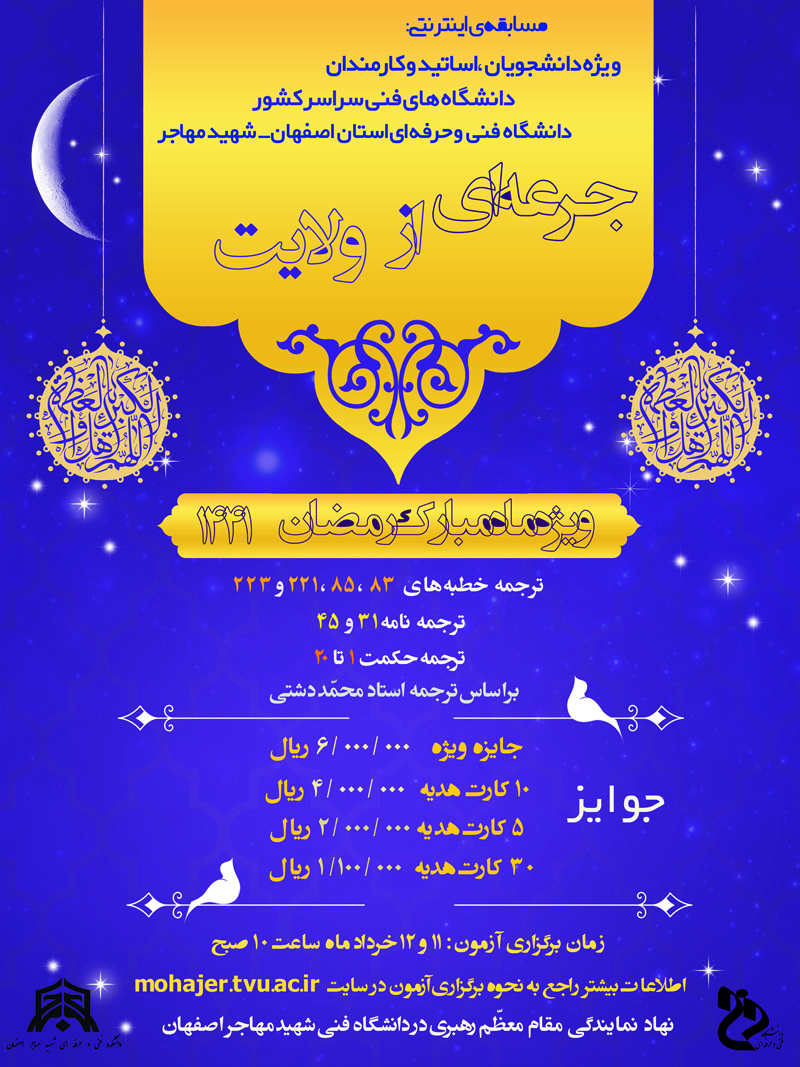 مسابقه‌ی اینترنتی:
ویژه دانشجویان، اساتید و کارمندان
دانشگاه های فنی سراسر کشور
دانشگاه فنی و حرفه ای استان اصفهان_ شهید مهاجر
جرعه‌ای از ولایت
ویژه ماه مبارک رمضان ۱۴۴۱
ترجمه خطبه‌های ۸۳ ،۸۵ ،۲۲۱ و ۲۲۳
ترجمه نامه ۳۱ و ۴۵
ترجمه حکمت ۱ تا ۲۰
براساس ترجمه استاد محمّد دشتی
جوایز
جایزه ویژه ۶/۰۰۰/۰۰۰ ریال
۱۰ کارت هدیه ۴/۰۰۰/۰۰۰ ریال
۵ کارت هدیه ۲/۰۰۰/۰۰۰ ریال
۳۰ کارت هدیه ۱/۱۰۰/۰۰۰ ریال
زمان برگزاری آزمون: ۱۱ و ۱۲ خرداد ماه ساعت ۱۰ صبح
اطلاعات بیشتر راجع به نحوه برگزاری آزمون در سایت mohajer.tvu.ac.ir
نهاد نمایندگی مقام معظّم رهبری در دانشگاه فنی شهید مهاجر اصفهان
دانشگاه فنی و حرفه ای شهید مهاجر اصفهان
دانشگاه
فنی و حرفه‌ای